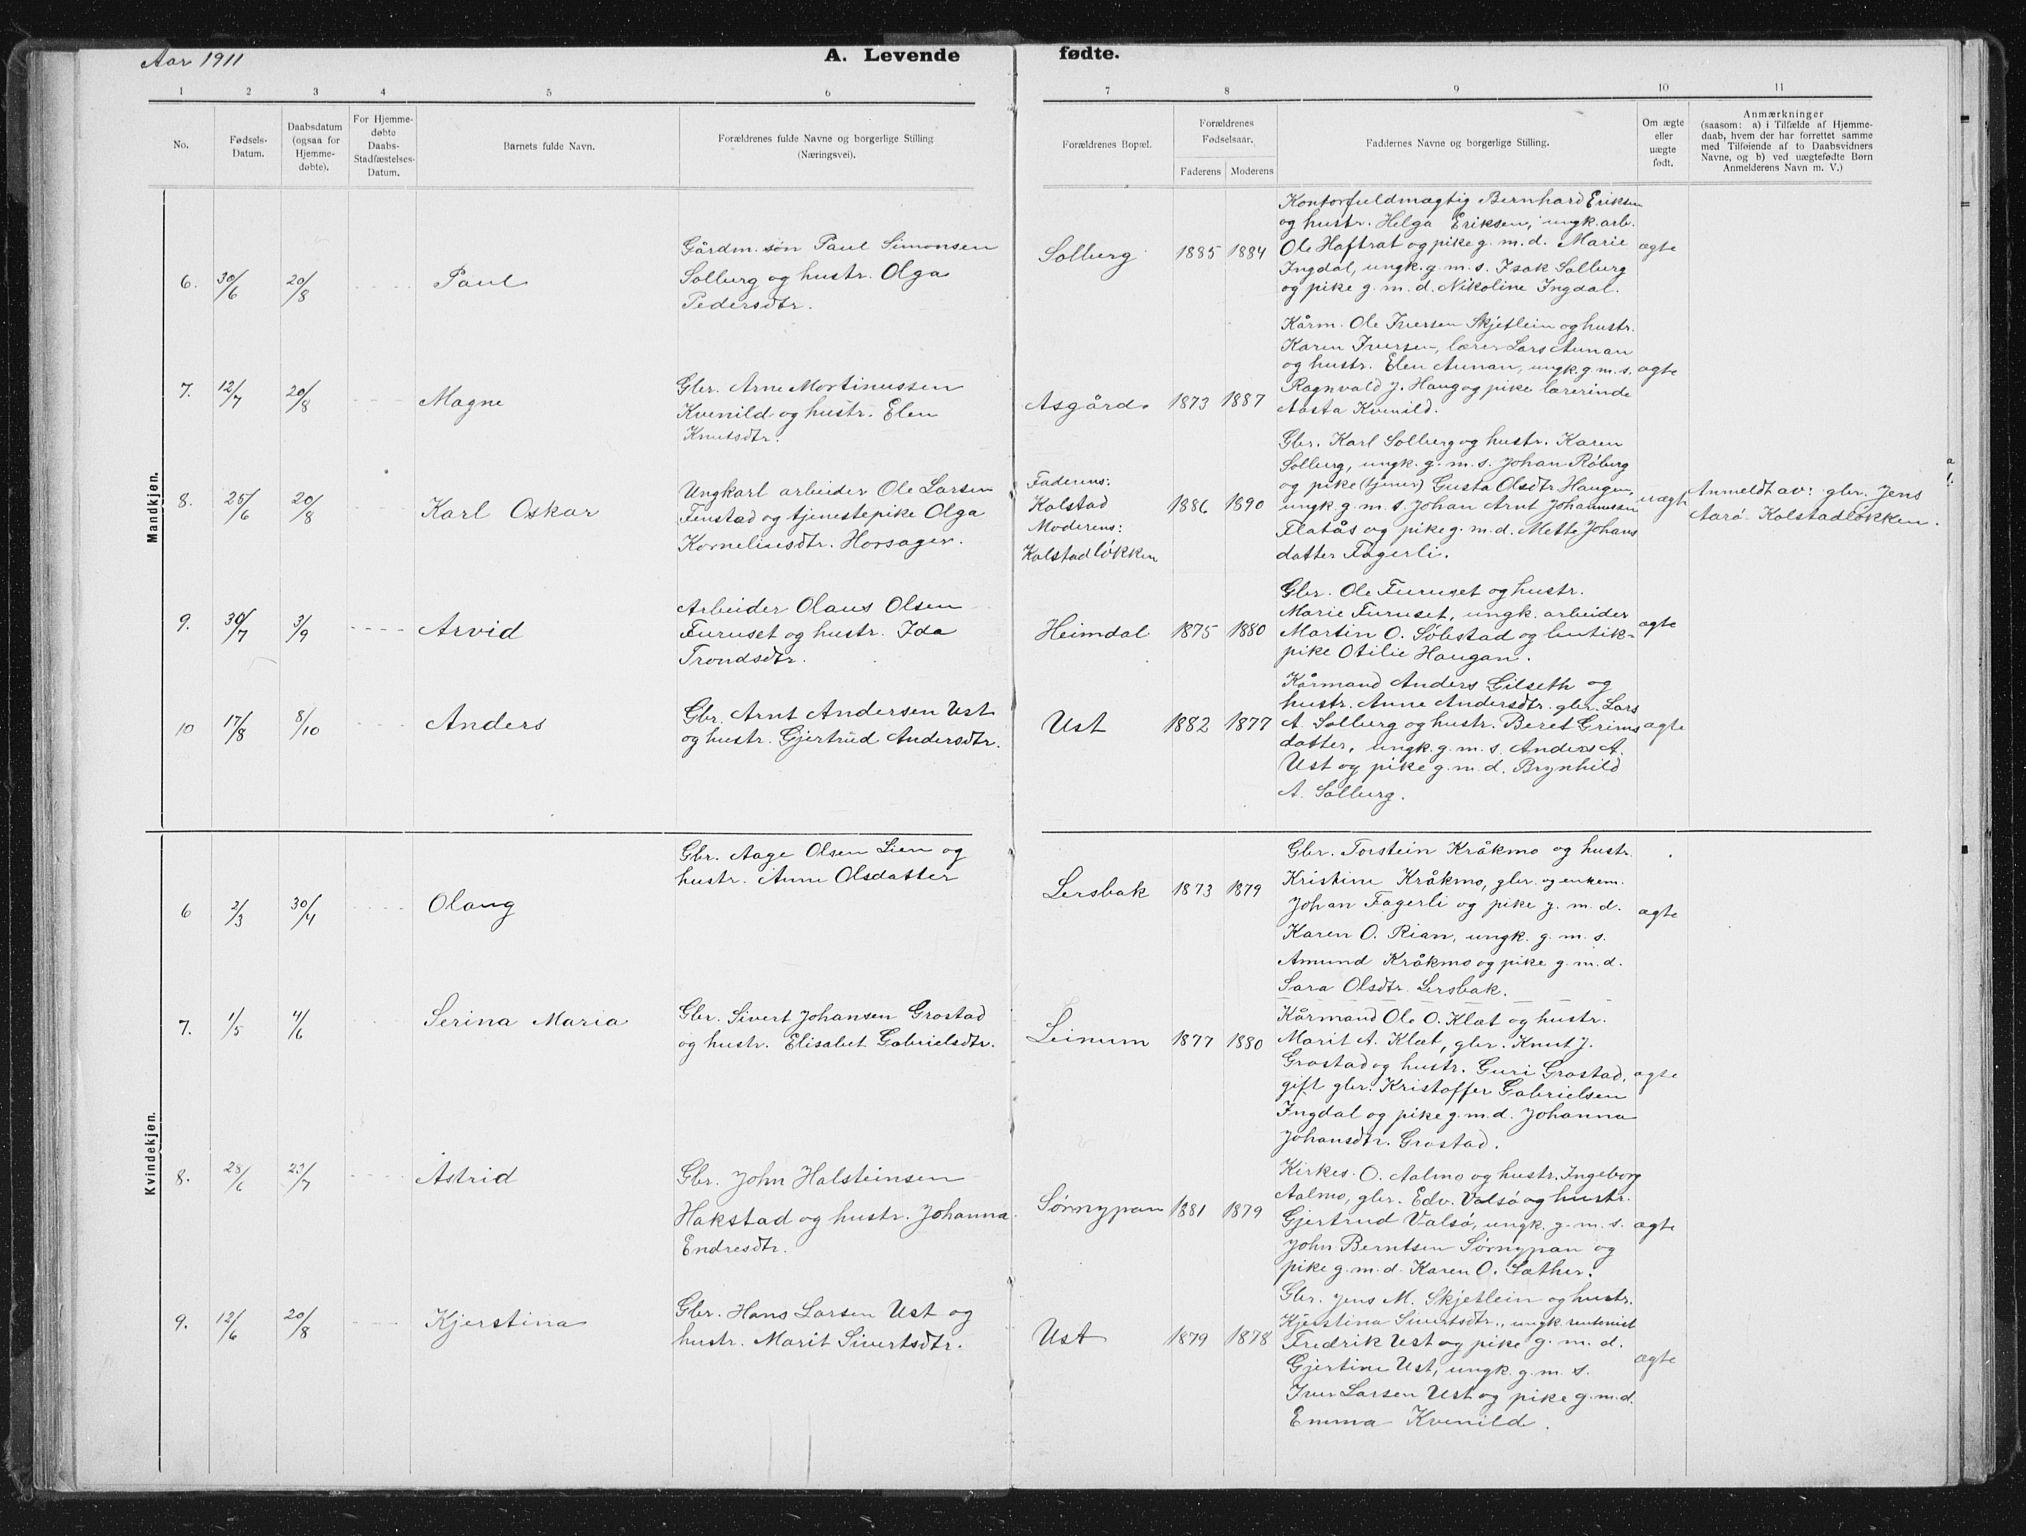 Aar 1911
A. Levende fødte.
1 2 3 4 5 6 7 8 9 10 11
No.
Fødsels-
Datum.
Daabsdatum
(ogsaa for
Hjemme-
døbte).
For Hjemme-
døbte
Daabs-
Stadfæstelses-
Datum.
Barnets fulde Navn.
Forældrenes fulde Navne og borgerlige Stilling
(Næringsvei).
Forældrenes Bopæl.
Forældrenes
Fødselsaar.
Faderens Moderens
Faddernes Navne og borgerlige Stilling.
Om ægte
eller
uægte
født.
Anmærkninger
(saasom: a) i Tilfælde af Hjemme-
daab, hvem der har forrettet samme
med Tilføiende af to Daabsvidners
Navne, og b) ved uægtefødte Børn
Anmelderens Navn m. V.)
Mandkjøn.
6. 30/6 20/8 Paul
Gårdm. søn Paul Simonsen
Solberg og hustr. Olga
Pedersdtr.
Solberg 1885 1884
Kontorfuldmægtig Bernhard Eriksen
og hustr. Helga Eriksen, ungk. arb.
Ole Haftrat og pike g. m. d. Marie
Ingdal, ungk. g. m. s. Isak Solberg
og pike g. m. d. Nikoline Ingdal.
ægte
7. 12/7 20/8 Magne
Gbr. Arne Mortinussen
Kvenild og hustr. Elen
Knutsdtr.
Asgård. 1873 1887
Kårm. Ole Iversen Skjetlein og hustr.
Karen Iversen, lærer Lars Aunan
og hustr. Elen Aunan, ungk. g. m. s.
Ragnvald J. Haug og pike lærerinde
Aasta Kvenild.
ægte
8. 25/6 20/8 Karl Oskar
Ungkarl arbeider Ole Larsen
Fenstad og tjenestepike Olga
Korneliusdtr. Horsager.
Faderens:
Kolstad
Moderens:
Kolstadløkken
1886 1890
Gbr. Karl Solberg og hustr. Karen
Solberg, ungk. g. m. s. Johan Røberg
og pike (tjener) Gusta Olsdtr. Haugen,
ungk. g. m. s. Johan Arnt Johannessen
Flatås og pike g. m. d. Mette Johans
datter Fagerli.
uægte
Anmeldt av: gbr. Jens
Aarø Kolstadløkken.
9. 30/7 3/9 Arvid
Arbeider Olaus Olsen
Furuset og hustr. Ida
Trondsdtr.
Heimdal 1875 1880
Gbr. Ole Furuset og hustr.
Marie Furuset, ungk. arbeider
Martin O. Søbstad og butik-
pike Otilie Haugan.
ægte
10 17/8 8/10 Anders
Gbr. Arnt Andersen Ust
og hustr. Gjertrud Andersdtr.
Ust 1882 1877
Kårmand Anders Gilseth og
hustr. Anne Andersdtr. gbr. Lars
A. Solberg og hustr. Beret Grims
datter, ungk. g. m. s. Anders A.
Ust og pike g. m. d. Brynhild
A. Solberg.
ægte
Kvindekjøn.
6 2/3 30/4 Olaug
Gbr. Aage Olsen Lien og
hustr. Anne Olsdatter
Lersbak 1873 1879
Gbr. Torstein Kråkmo og hustr.
Kristine Kråkmo, gbr. og enkem.
Johan Fagerli og pike g. m. d.
Karen O. Rian, ungk. g. m. s.
Amund Kråkmo og pike g. m. d.
Sara Olsdtr. Lersbak.
ægte
7. 1/5 4/6 Serina Maria
Gbr. Sivert Johansen Grostad
og hustr. Elisabet Gabrielsdtr.
Leinum 1877 1880
Kårmand Ole O. Klæt og hustr.
Marit A. Klæt, gbr. Knut J.
Grostad og hustr. Guri Grostad,
gift gbr. Kristoffer Gabrielsen
Ingdal og pike g. m. d. Johanna
Johansdtr. Grostad.
ægte
8. 28/6 23/7 Astrid
Gbr. John Halsteinsen
Hakstad og hustr. Johanna
Endresdtr.
Sørnypan 1881 1879
Kirkes. O. Aalmo og hustr. Ingeborg
Aalmo, gbr. Edv. Valsø og hustr.
Gjertrud Valsø, ungk. g. m. s.
John Berntsen Sørnypan og
pike g. m. d. Karen O. Sæther.
ægte
9. 12/6 20/8 Kjerstina
Gbr. Hans Larsen Ust og
hustr. Marit Sivertsdtr.
Ust 1879 1878
Gbr. Jens M. Skjetlein og hustr.
Kjerstina Sivertsdtr., ungk. rentenist
Fredrik Ust og pike g. m. d.
Gjertine Ust, ungk. g. m. s.
Iver Larsen Ust og pike g. m. d.
Emma Kvenild.
ægte